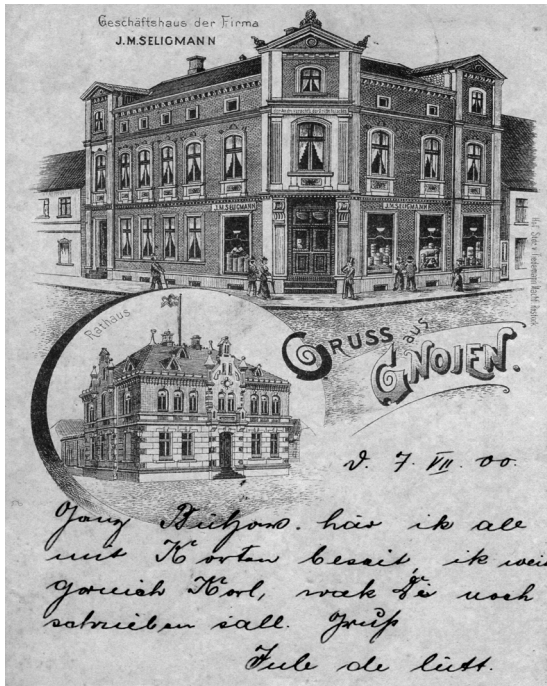 Geschäftshaus der Firma
J.M.SELIGMANN
J.M.SELIGMANN
J.M.SELIGMANN
Rathaus
GRUSS aus
GNOIEN.
d. 7. VII. 00.
Ganz Bützow. här ik all
mit Korten beseit, ik weit
gornich Korl, wak Di noch
schrieben sall. Gruß
Jule de lütt.